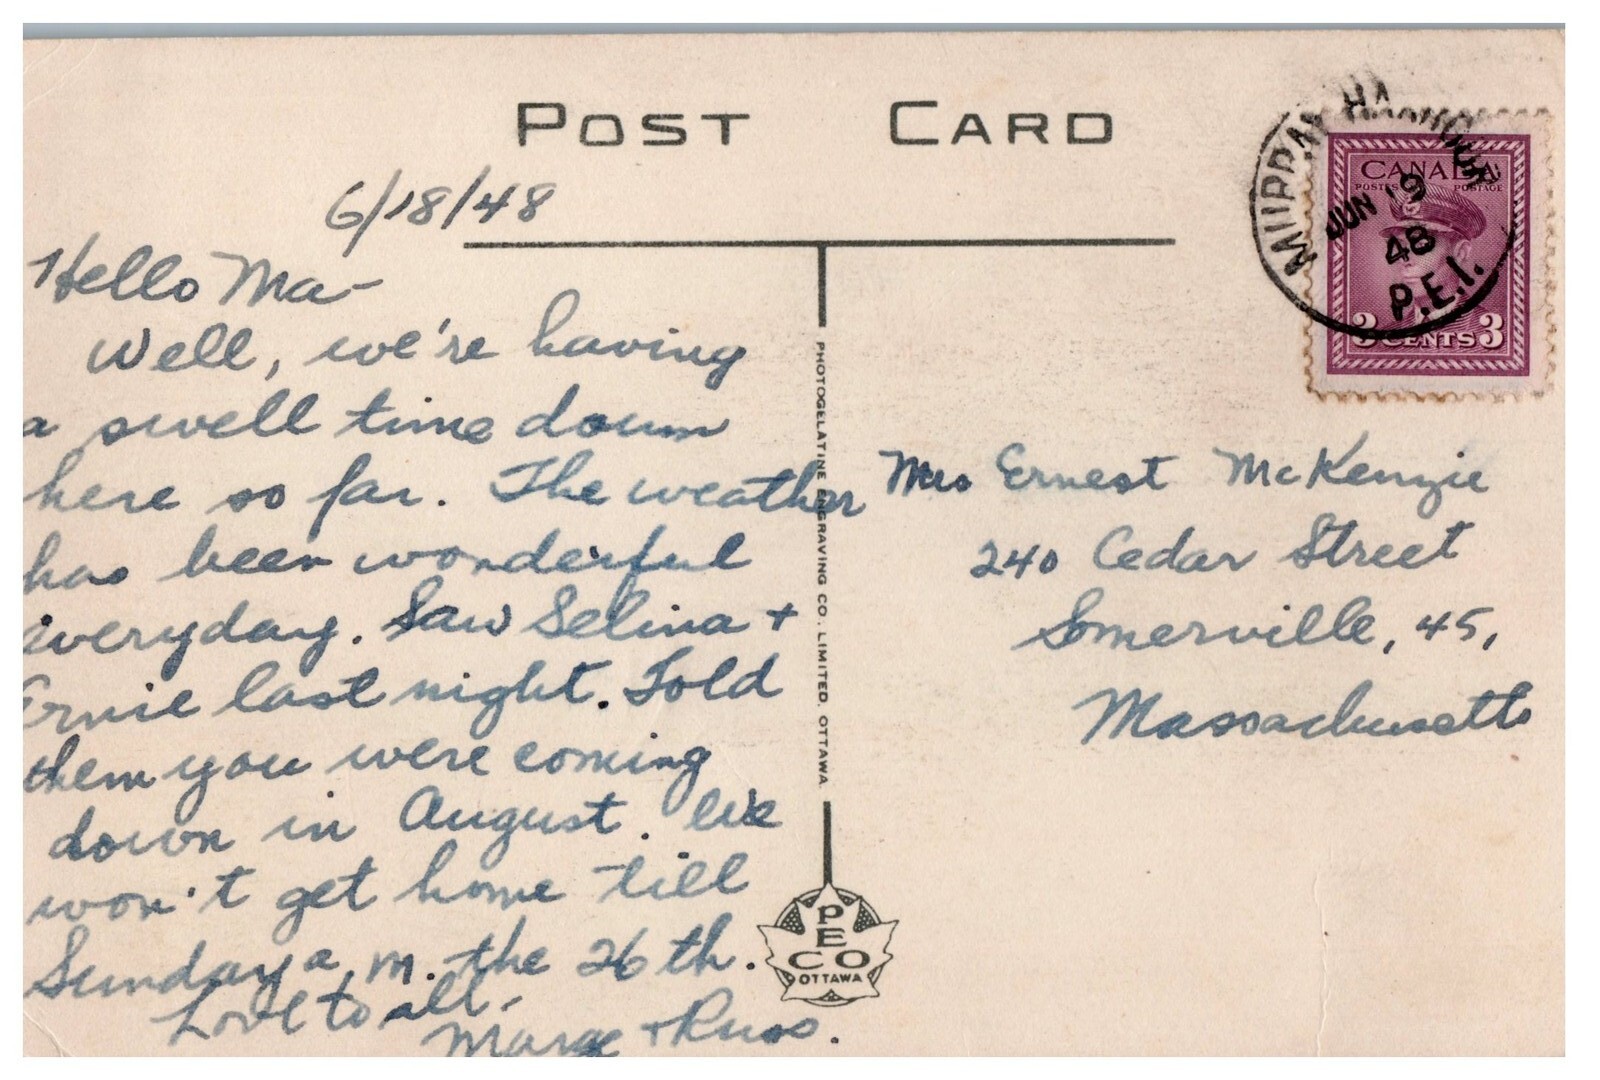 POST CARD
6/18/48
Hello Ma-
Well, we're having
a swell time down
here so far. The weather
has been wonderful
everyday. Saw Selina +
Ernie last night. Told
them you were coming
down in August. We
won't get home till
Sunday a.m. the 26th.
Love to all-
Marge + Russ.
PHOTOGELATINE ENGRAVING CO. LIMITED. OTTAWA
PECO
OTTAWA
MURRAY HARBOUR
JUN 19
48
P.E.I.
CANADA
POSTES POSTAGE
3 CENTS 3
Mrs Ernest McKenzie
240 Cedar Street
Somerville, 45,
Massachusetts